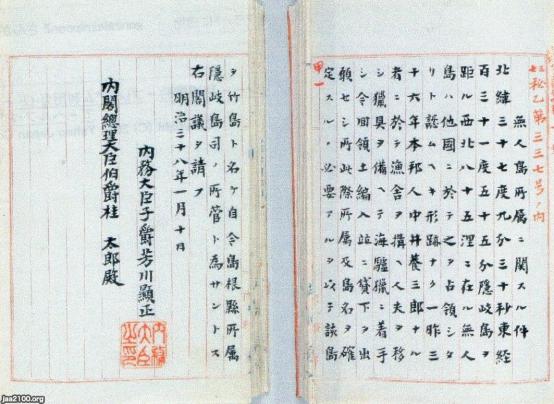 秘乙第三三七号ノ内
無人島所属ニ関スル件
北緯三十七度九分三十秒東経
百三十一度五十五分隠岐島ヲ
距ル西北八十五浬ニ在ル無人
島ハ他國ニ於テ之ヲ占領シタ
リト認ムヘキ形跡ナク一昨三
十六年本邦人中井養三郎ナル
者ニ於テ漁舎ヲ構ヘ人夫ヲ移
シ獵具ヲ備ヘテ海驢獵ニ着手
シ今回領土編入並ニ貸下ヲ出
願セシ所此際所属及島名ヲ確
定スルノ必要アルヲ以テ該島
甲一
ヲ竹島ト名ケ自今島根縣所属
隠岐島司ノ所管ト為サントス
右閣議ヲ請フ
明治三十八年一月十日
内務大臣子爵芳川顯正
内務大臣之印
内閣總理大臣伯爵桂 太郎殿
Jaa2100.org